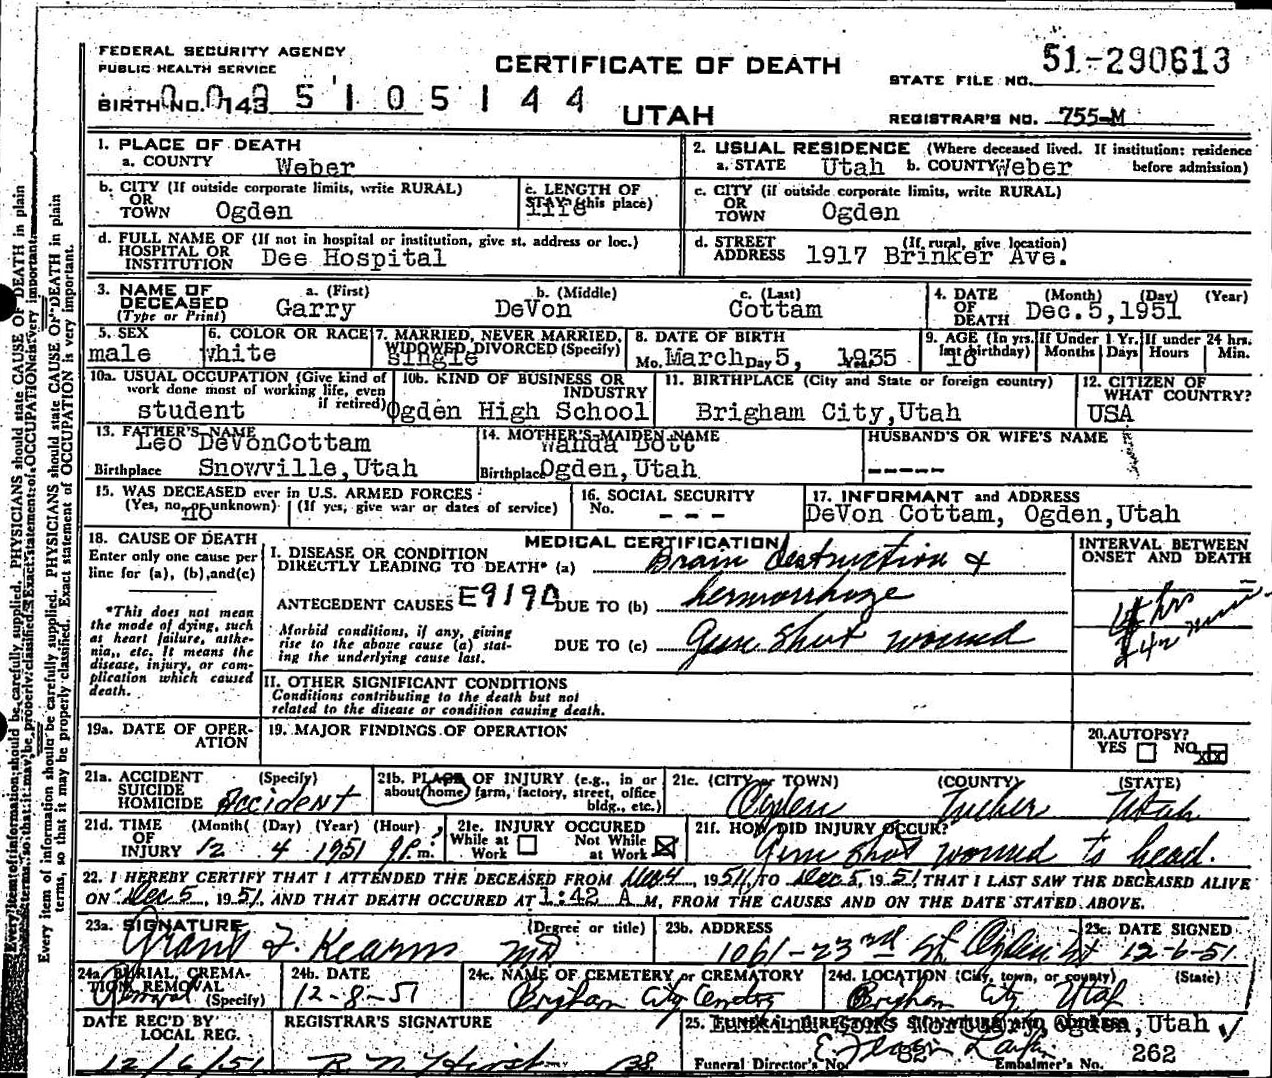 FEDERAL SECURITY AGENCY
PUBLIC HEALTH SERVICE
CERTIFICATE OF DEATH
STATE FILE NO. 51-290613
BIRTH NO. 143 5 1 0 5 1 4 4
UTAH
REGISTRAR'S NO. 755-M
1. PLACE OF DEATH
a. COUNTY Weber
2. USUAL RESIDENCE (Where deceased lived. If institution: residence before admission)
a. STATE Utah b. COUNTY Weber
b. CITY (If outside corporate limits, write RURAL)
OR
TOWN Ogden
c. LENGTH OF
STAY (this place)
life
c. CITY (if outside corporate limits, write RURAL)
OR
TOWN Ogden
d. FULL NAME OF (If not in hospital or institution, give st. address or loc.)
HOSPITAL OR
INSTITUTION Dee Hospital
d. STREET (If rural, give location)
ADDRESS 1917 Brinker Ave.
3. NAME OF a. (First) b. (Middle) c. (Last)
DECEASED Garry DeVon Cottam
(Type or Print)
4. DATE (Month) (Day) (Year)
OF
DEATH Dec.5,1951
5. SEX
male
6. COLOR OR RACE
white
7. MARRIED, NEVER MARRIED,
WIDOWED DIVORCED (Specify)
single
8. DATE OF BIRTH
Mo. March Day 5, 1935
9. AGE (In yrs. last birthday)
16
If Under 1 Yr. Months Days
If under 24 hrs. Hours Min.
10a. USUAL OCCUPATION (Give kind of
work done most of working life, even
if retired)
student
10b. KIND OF BUSINESS OR
INDUSTRY
Ogden High School
11. BIRTHPLACE (City and State or foreign country)
Brigham City,Utah
12. CITIZEN OF
WHAT COUNTRY?
USA
13. FATHER'S NAME
Leo DeVonCottam
Birthplace Snowville,Utah
14. MOTHER'S MAIDEN NAME
Wanda Bott
Birthplace Ogden,Utah
HUSBAND'S OR WIFE'S NAME
-----
15. WAS DECEASED ever in U.S. ARMED FORCES
(Yes, no, unknown) (If yes, give war or dates of service)
no
16. SOCIAL SECURITY
No. - - -
17. INFORMANT and ADDRESS
DeVon Cottam, Ogden,Utah
18. CAUSE OF DEATH
Enter only one cause per
line for (a), (b),and(c)
*This does not mean
the mode of dying, such
as heart failure, asthe-
nia,, etc. It means the
disease, injury, or com-
plication which caused
death.
MEDICAL CERTIFICATION
I. DISEASE OR CONDITION
DIRECTLY LEADING TO DEATH* (a) Brain destruction &
ANTECEDENT CAUSES E919A DUE TO (b) hemorrhage
Morbid conditions, if any, giving
rise to the above cause (a) stat-
ing the underlying cause last.
DUE TO (c) Gun Shot wound
II. OTHER SIGNIFICANT CONDITIONS
Conditions contributing to the death but not
related to the disease or condition causing death.
INTERVAL BETWEEN
ONSET AND DEATH
4 hrs
42 min
19a. DATE OF OPER-
ATION
19. MAJOR FINDINGS OF OPERATION
20. AUTOPSY?
YES NO
21a. ACCIDENT (Specify)
SUICIDE
HOMICIDE Accident
21b. PLACE OF INJURY (e.g., in or
about home, farm, factory, street, office
bldg., etc.)
21c. (CITY or TOWN) (COUNTY) (STATE)
Ogden Weber Utah
21d. TIME (Month) (Day) (Year) (Hour)
OF
INJURY 12 4 1951 9P. m.
21e. INJURY OCCURED
While at Work Not While at Work
21f. HOW DID INJURY OCCUR?
Gun Shot wound to head.
22. I HEREBY CERTIFY THAT I ATTENDED THE DECEASED FROM , 1951, TO Dec 5, 1951, THAT I LAST SAW THE DECEASED ALIVE
ON Dec 5, 1951, AND THAT DEATH OCCURED AT 1:42 A M, FROM THE CAUSES AND ON THE DATE STATED ABOVE.
23a. SIGNATURE (Degree or title)
Grant F. Kearns MD
23b. ADDRESS
1061-23rd St. Ogden Ut
23c. DATE SIGNED
12-6-51
24a. BURIAL, CREMA-
TION, REMOVAL
(Specify)
Removal
24b. DATE
12-8-51
24c. NAME OF CEMETERY or CREMATORY
Brigham City Cemetery
24d. LOCATION (City, town, or county) (State)
Brigham City Utah
DATE REC'D BY
LOCAL REG.
12/6/51
REGISTRAR'S SIGNATURE
25. FUNERAL DIRECTOR'S SIGNATURE AND ADDRESS
Mortuary, Ogden,Utah
Funeral Director's No. 82 Embalmer's No. 262
Every item of information should be carefully supplied. PHYSICIANS should state CAUSE OF DEATH in plain
terms, so that it may be properly classified. Exact statement of OCCUPATION is very important.
Every item of information should be carefully supplied. PHYSICIANS should state CAUSE OF DEATH in plain
terms, so that it may be properly classified. Exact statement of OCCUPATION is very important.